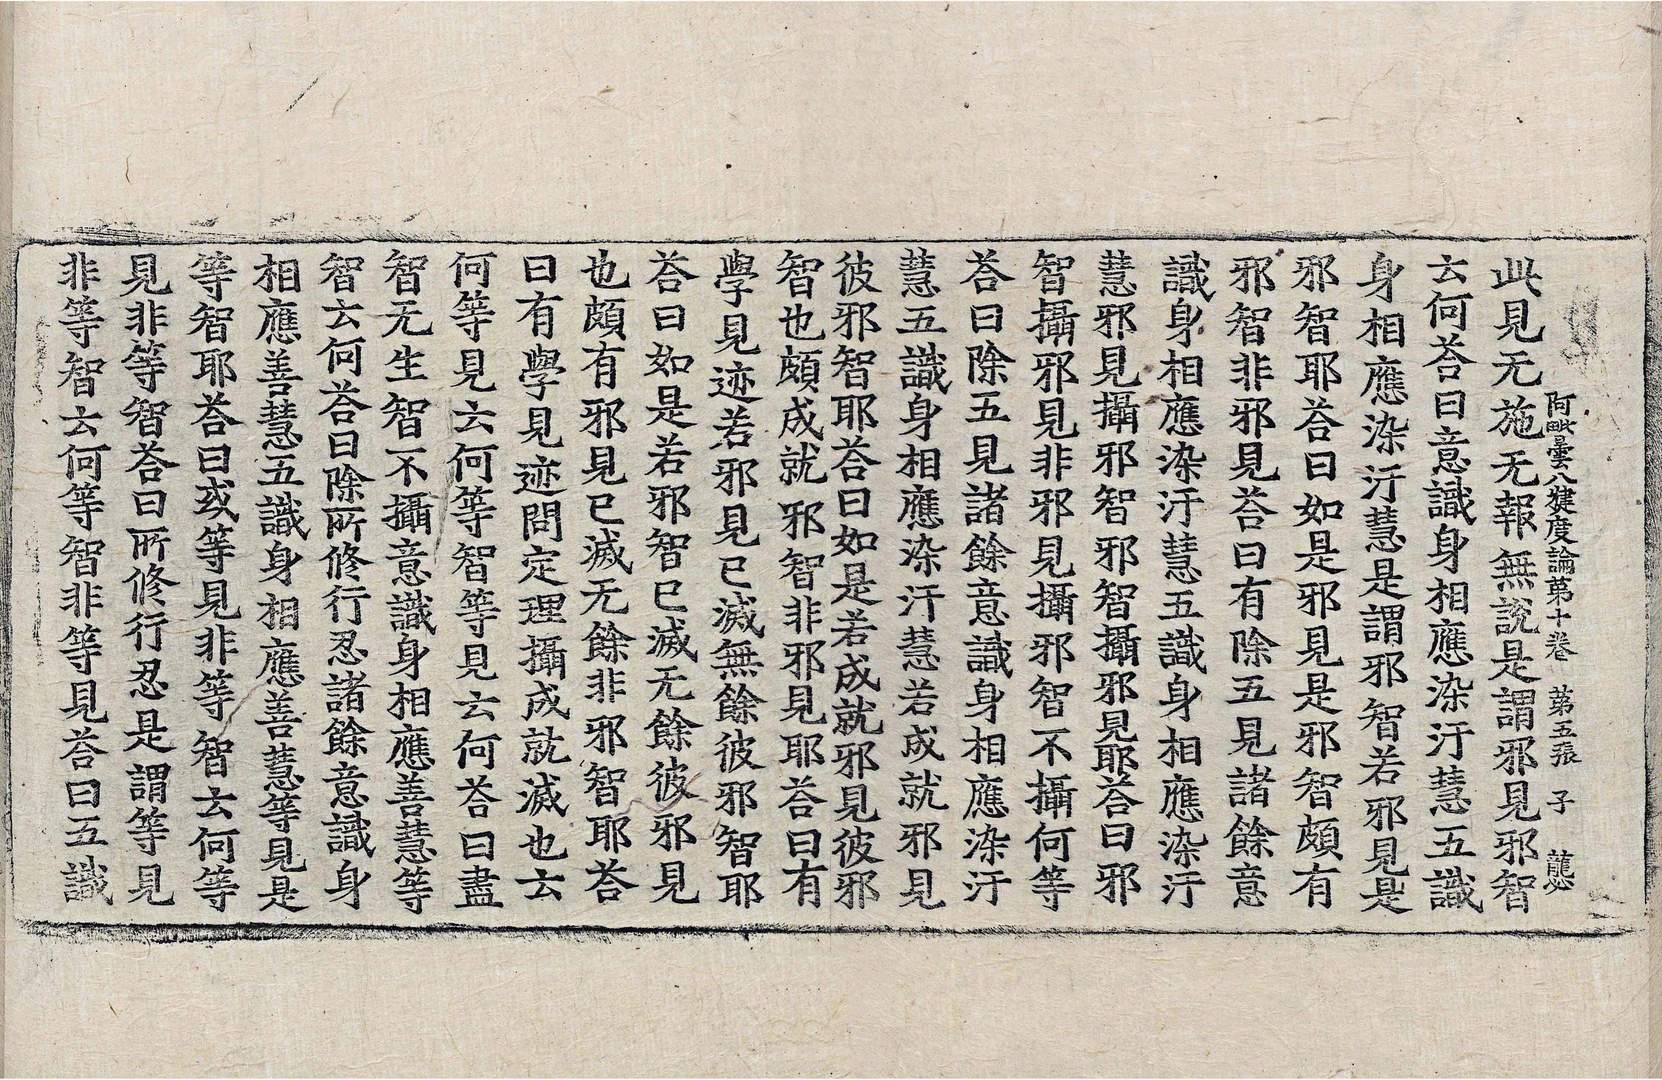 阿毗曇八犍度論第十卷 第五張 子 龍必
此見无施无報無說是謂邪見邪智
云何荅曰意識身相應染汙慧五識
身相應染汙慧是謂邪智若邪見是
邪智耶荅曰如是邪見是邪智頗有
邪智非邪見荅曰有除五見諸餘意
識身相應染汙慧五識身相應染汙
慧邪見攝邪智邪智攝邪見耶荅曰邪
智攝邪見非邪見攝邪智不攝何等
荅曰除五見諸餘意識身相應染汙
慧五識身相應染汙慧若成就邪見
彼邪智耶荅曰如是若成就邪見彼邪
智也頗成就邪智非邪見耶荅曰有
學見迹若邪見已滅無餘彼邪智耶
荅曰如是若邪智已滅无餘彼邪見
也頗有邪見已滅无餘非邪智耶荅
曰有學見迹問定理攝成就滅也云
何等見云何等智等見云何荅曰盡
智无生智不攝意識身相應善慧等
智云何荅曰除所修行忍諸餘意識身
相應善慧五識身相應善慧等見是
等智耶荅曰或等見非等智云何等
見非等智荅曰所修行忍是謂等見
非等智云何等智非等見荅曰五識